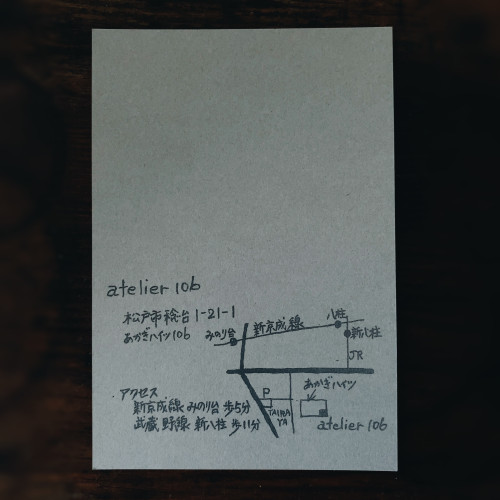 atelier 106
松戸市稔台1-21-1
あかぎハイツ106
みのり台
新京成線
八柱
新八柱
JR
あかぎハイツ
P
TAIRA
YA
atelier 106
・アクセス
新京成線 みのり台 歩5分
武蔵野線 新八柱 歩11分